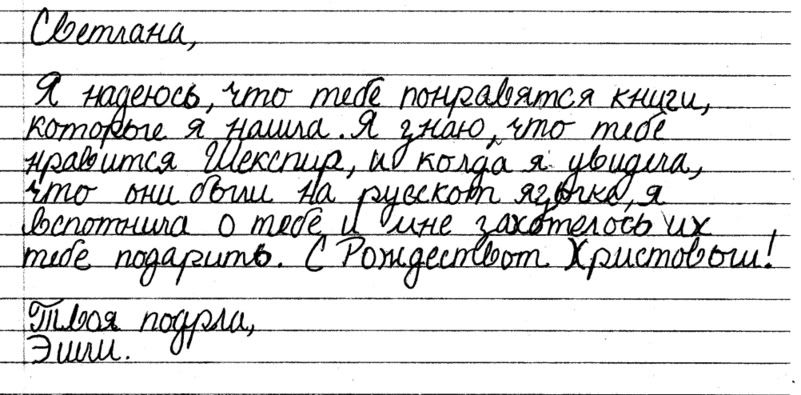 Светлана,
Я надеюсь, что тебе понравятся книги,
которые я нашла. Я знаю, что тебе
нравится Шекспир, и когда я увидела,
что они были на русском языке, я
вспомнила о тебе и мне захотелось их
тебе подарить. С Рождеством Христовым!
Твоя подруга,
Эшли.